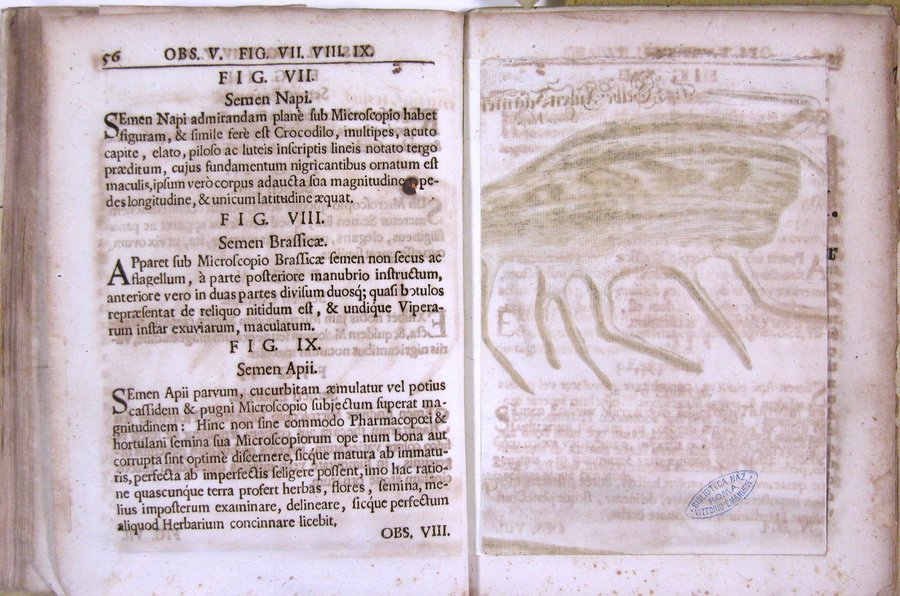 56 OBS. V. FIG. VII. VIII. IX.
FIG. VII.
Semen Napi.
SEmen Napi admirandam planè sub Microscopio habet
figuram, & simile ferè est Crocodilo, multipes, acuto
capite, elato, piloso ac luteis inscriptis lineis notato tergo
præditum, cujus fundamentum nigricantibus ornatum est
maculis, ipsum verò corpus adaucta sua magnitudine pe-
des longitudine, & unicum latitudine æquat.
FIG. VIII.
Semen Brassicæ.
APparet sub Microscopio Brassicæ semen non secus ac
flagellum, à parte posteriore manubrio instructum,
anteriore vero in duas partes divisum duosq; quasi botulos
repræsentat de reliquo nitidum est, & undique Vipera-
rum instar exuviarum, maculatum.
FIG. IX.
Semen Apii.
SEmen Apii parvum, cucurbitam æmulatur vel potius
cassidem & pugni Microscopio subjectum superat ma-
gnitudinem: Hinc non sine commodo Pharmacopœi &
hortulani semina sua Microscopiorum ope num bona aut
corrupta sint optimè discernere, sicque matura ab immatu-
ris, perfecta ab imperfectis seligere possent, imo hac ratio-
ne quascunque terra profert herbas, flores, semina, me-
lius imposterum examinare, delineare, sicque perfectum
aliquod Herbarium concinnare licebit.
OBS. VIII.
BIBLIOTECA NAZ.
ROMA
VITTORIO EMANUELE